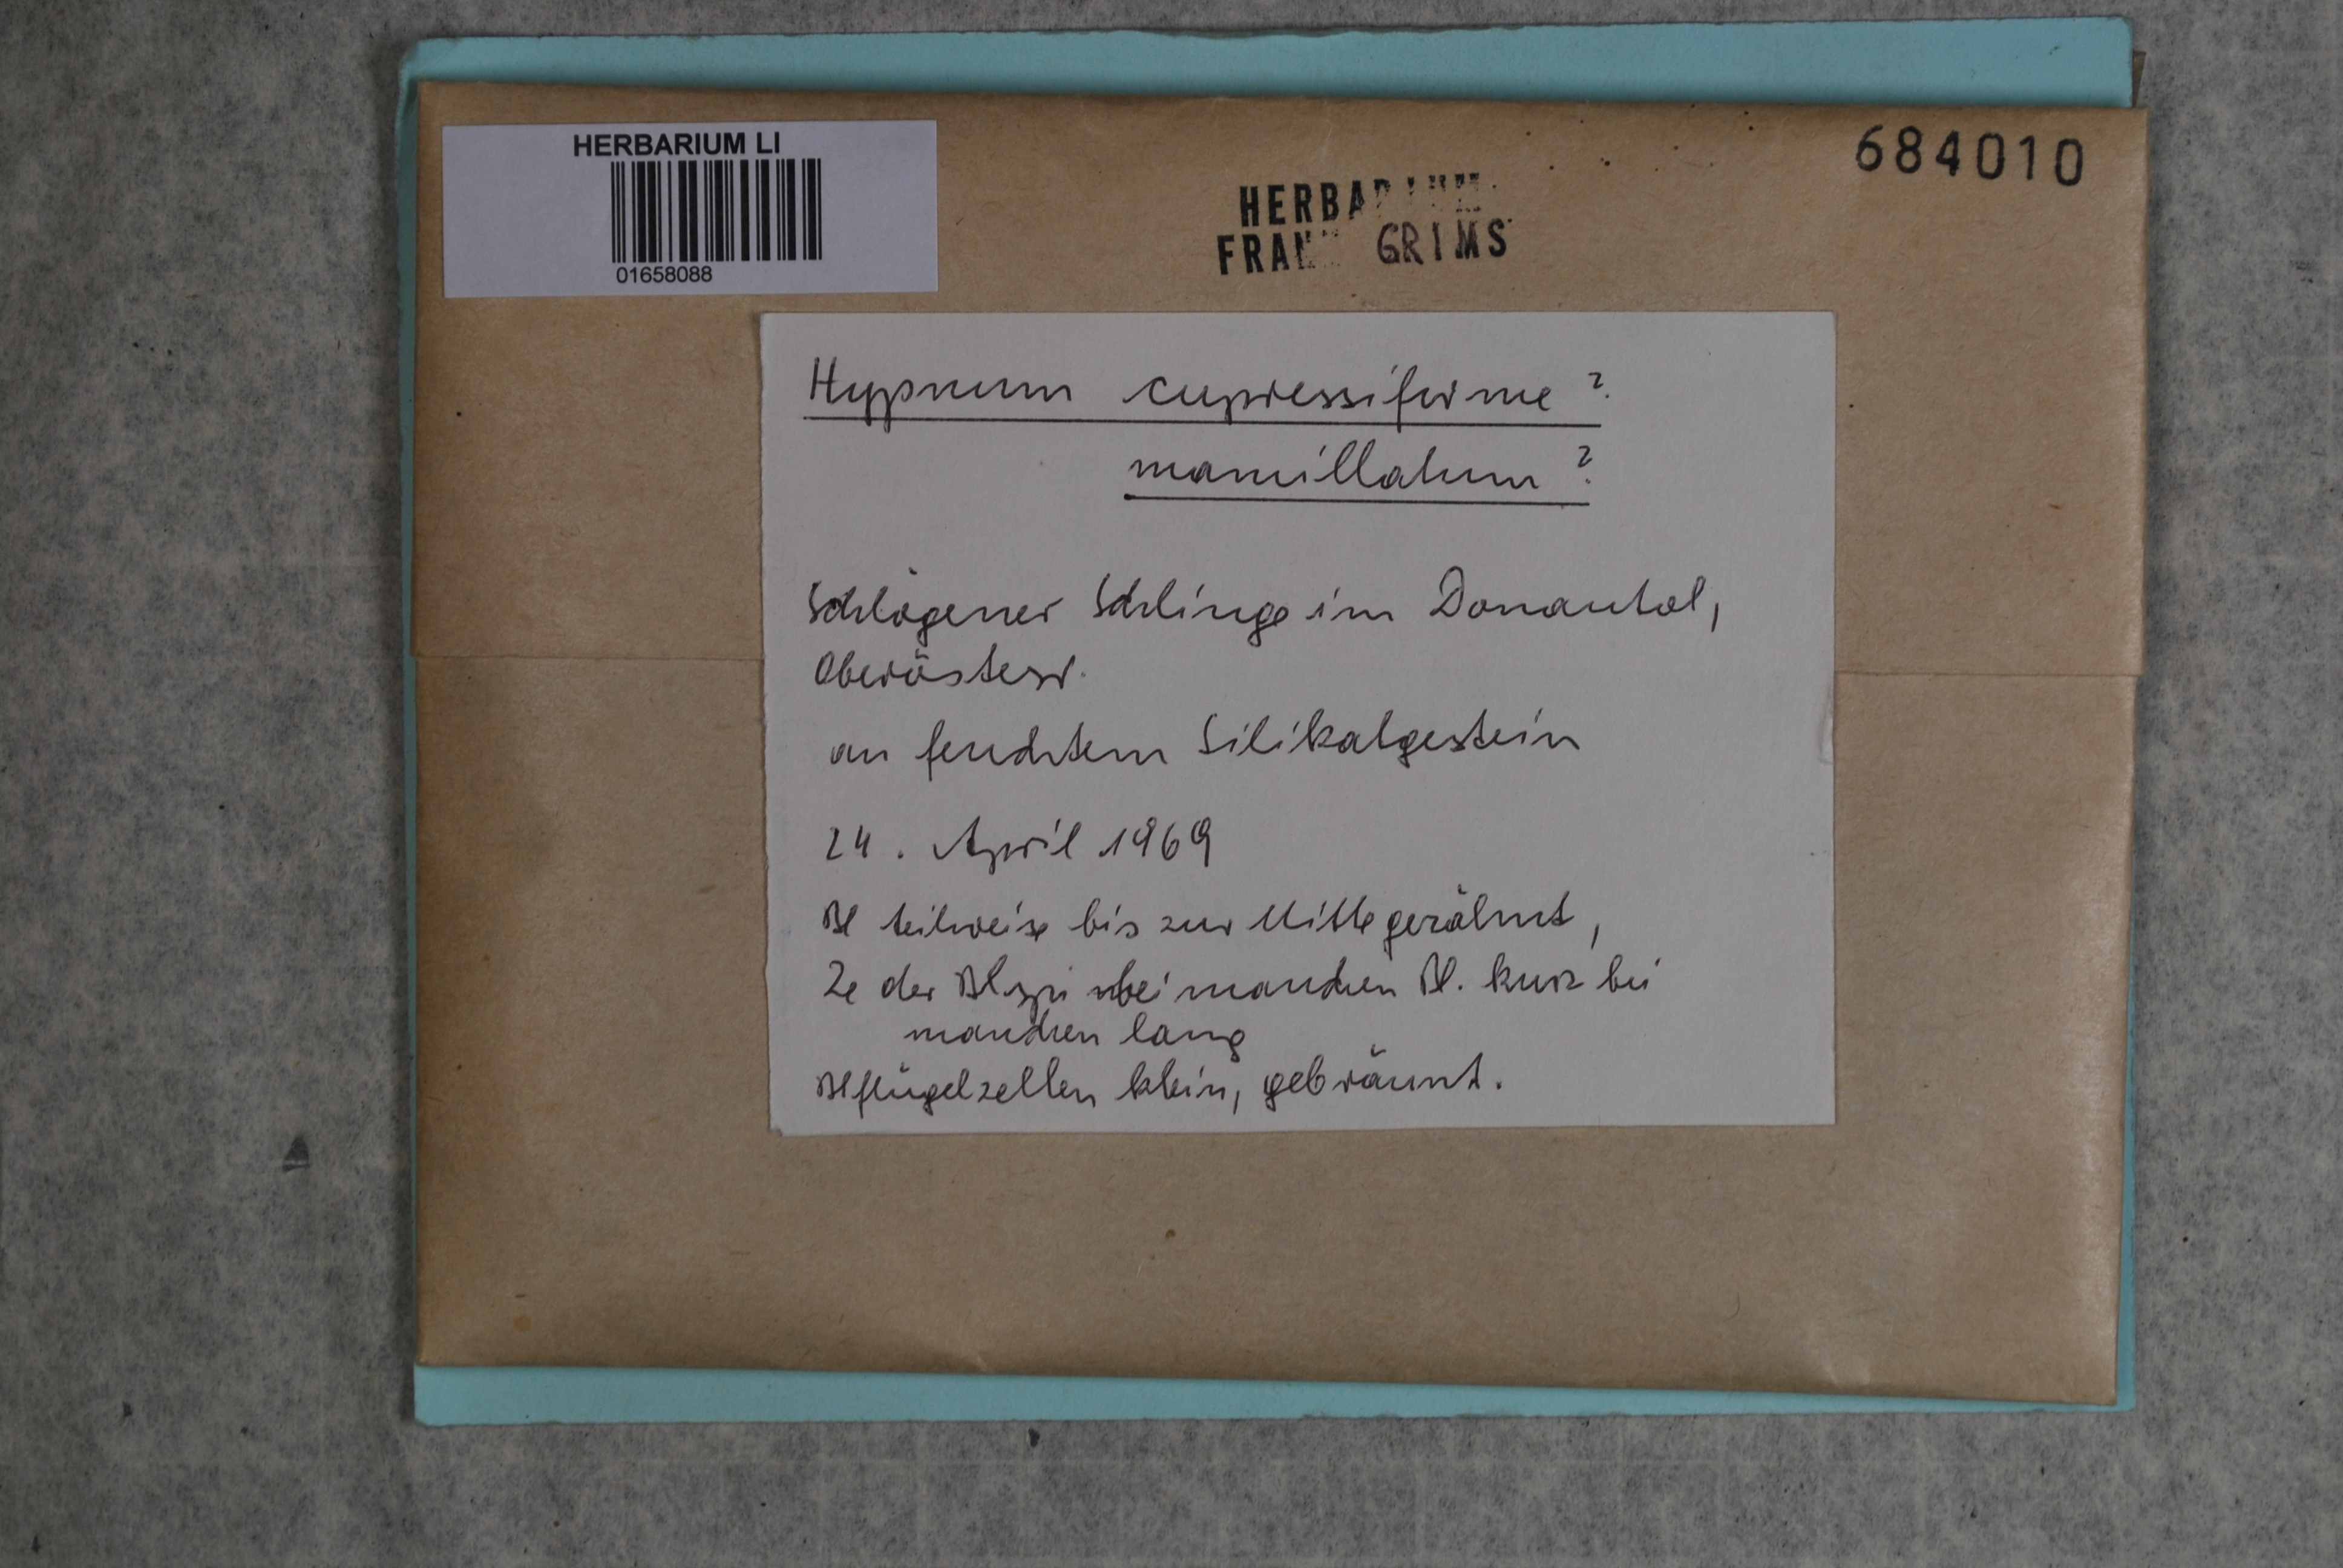 HERBARIUM LI
01658088
684010
HERBARIUM
FRANZ GRIMS
Hypnum cupressiforme?
mamillatum?
Schlögener Schlinge im Donautal,
Oberösterr.
an feuchtem Silikatgestein
24. April 1969
Bl teilweise bis zur Mitte gezähnt,
Ze der Blspi bei manchen Bl. kurz bei
manchen lang
Blflügelzellen klein, gebräunt.